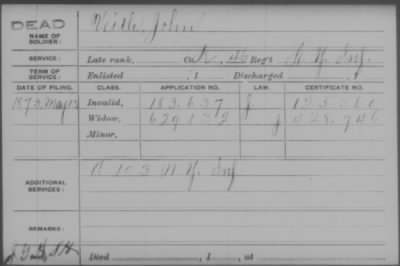 DEAD
NAME OF SOLDIER: Veith, John
SERVICE: Late rank, Co. K, 46 Reg't N.Y. Inf.
TERM OF SERVICE: Enlisted 1 Discharged 1
DATE OF FILING. CLASS. APPLICATION NO. LAW. CERTIFICATE NO.
1873, May 13 Invalid, 183.637
Widow, 629.132 428.746
Minor,
ADDITIONAL SERVICES: K 103 N.Y. Inf
REMARKS:
Died , 1 , at